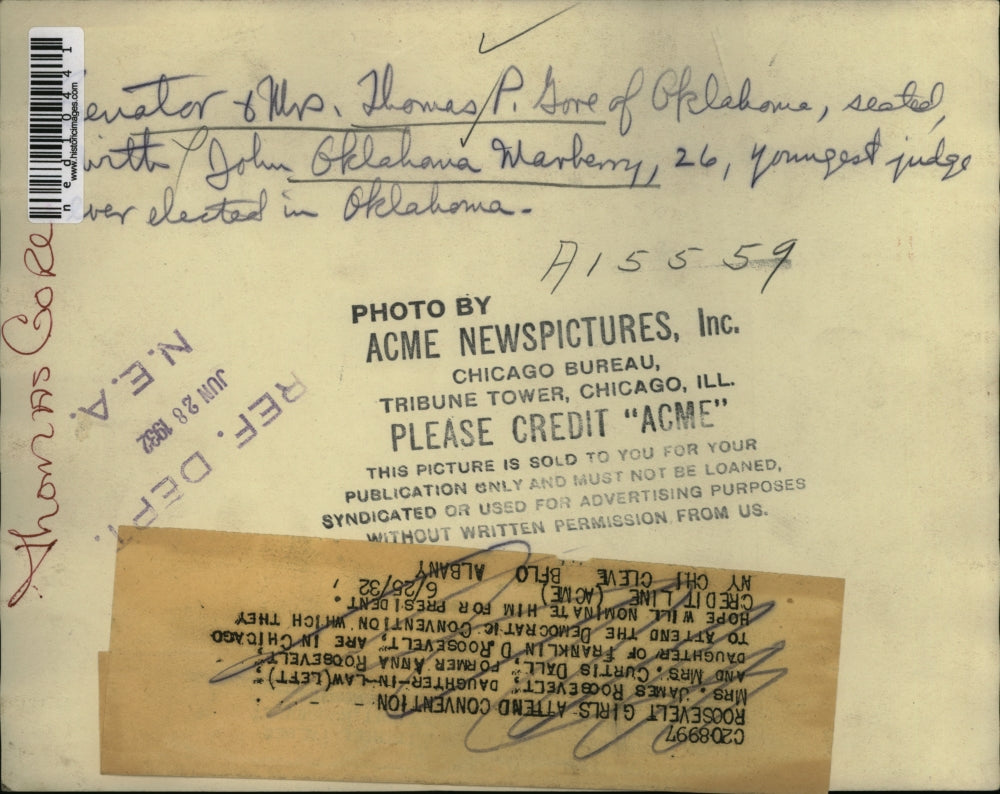 enator & Mrs. Thomas P. Gore of Oklahoma, seated,
with John Oklahoma Marberry, 26, youngest judge
ver elected in Oklahoma.
A15559
PHOTO BY
ACME NEWSPICTURES, Inc.
CHICAGO BUREAU,
TRIBUNE TOWER, CHICAGO, ILL.
PLEASE CREDIT "ACME"
THIS PICTURE IS SOLD TO YOU FOR YOUR
PUBLICATION ONLY AND MUST NOT BE LOANED,
SYNDICATED OR USED FOR ADVERTISING PURPOSES
WITHOUT WRITTEN PERMISSION FROM US.
Thomas Gore
REF. DEPT.
JUN 28 1932
N.E.A.
www.historicimages.com
ned10441
C208997
ROOSEVELT GIRLS ATTEND CONVENTION
MRS. JAMES ROOSEVELT, DAUGHTER-IN-LAW (LEFT)
AND MRS. CURTIS DALL, FORMER ANNA ROOSEVELT,
DAUGHTER OF FRANKLIN D. ROOSEVELT, ARE IN CHICAGO
TO ATTEND THE DEMOCRATIC CONVENTION WHICH THEY
HOPE WILL NOMINATE HIM FOR PRESIDENT.
CREDIT LINE (ACME) 6/25/32
NY CHI CLEVE BFLO ALBANY